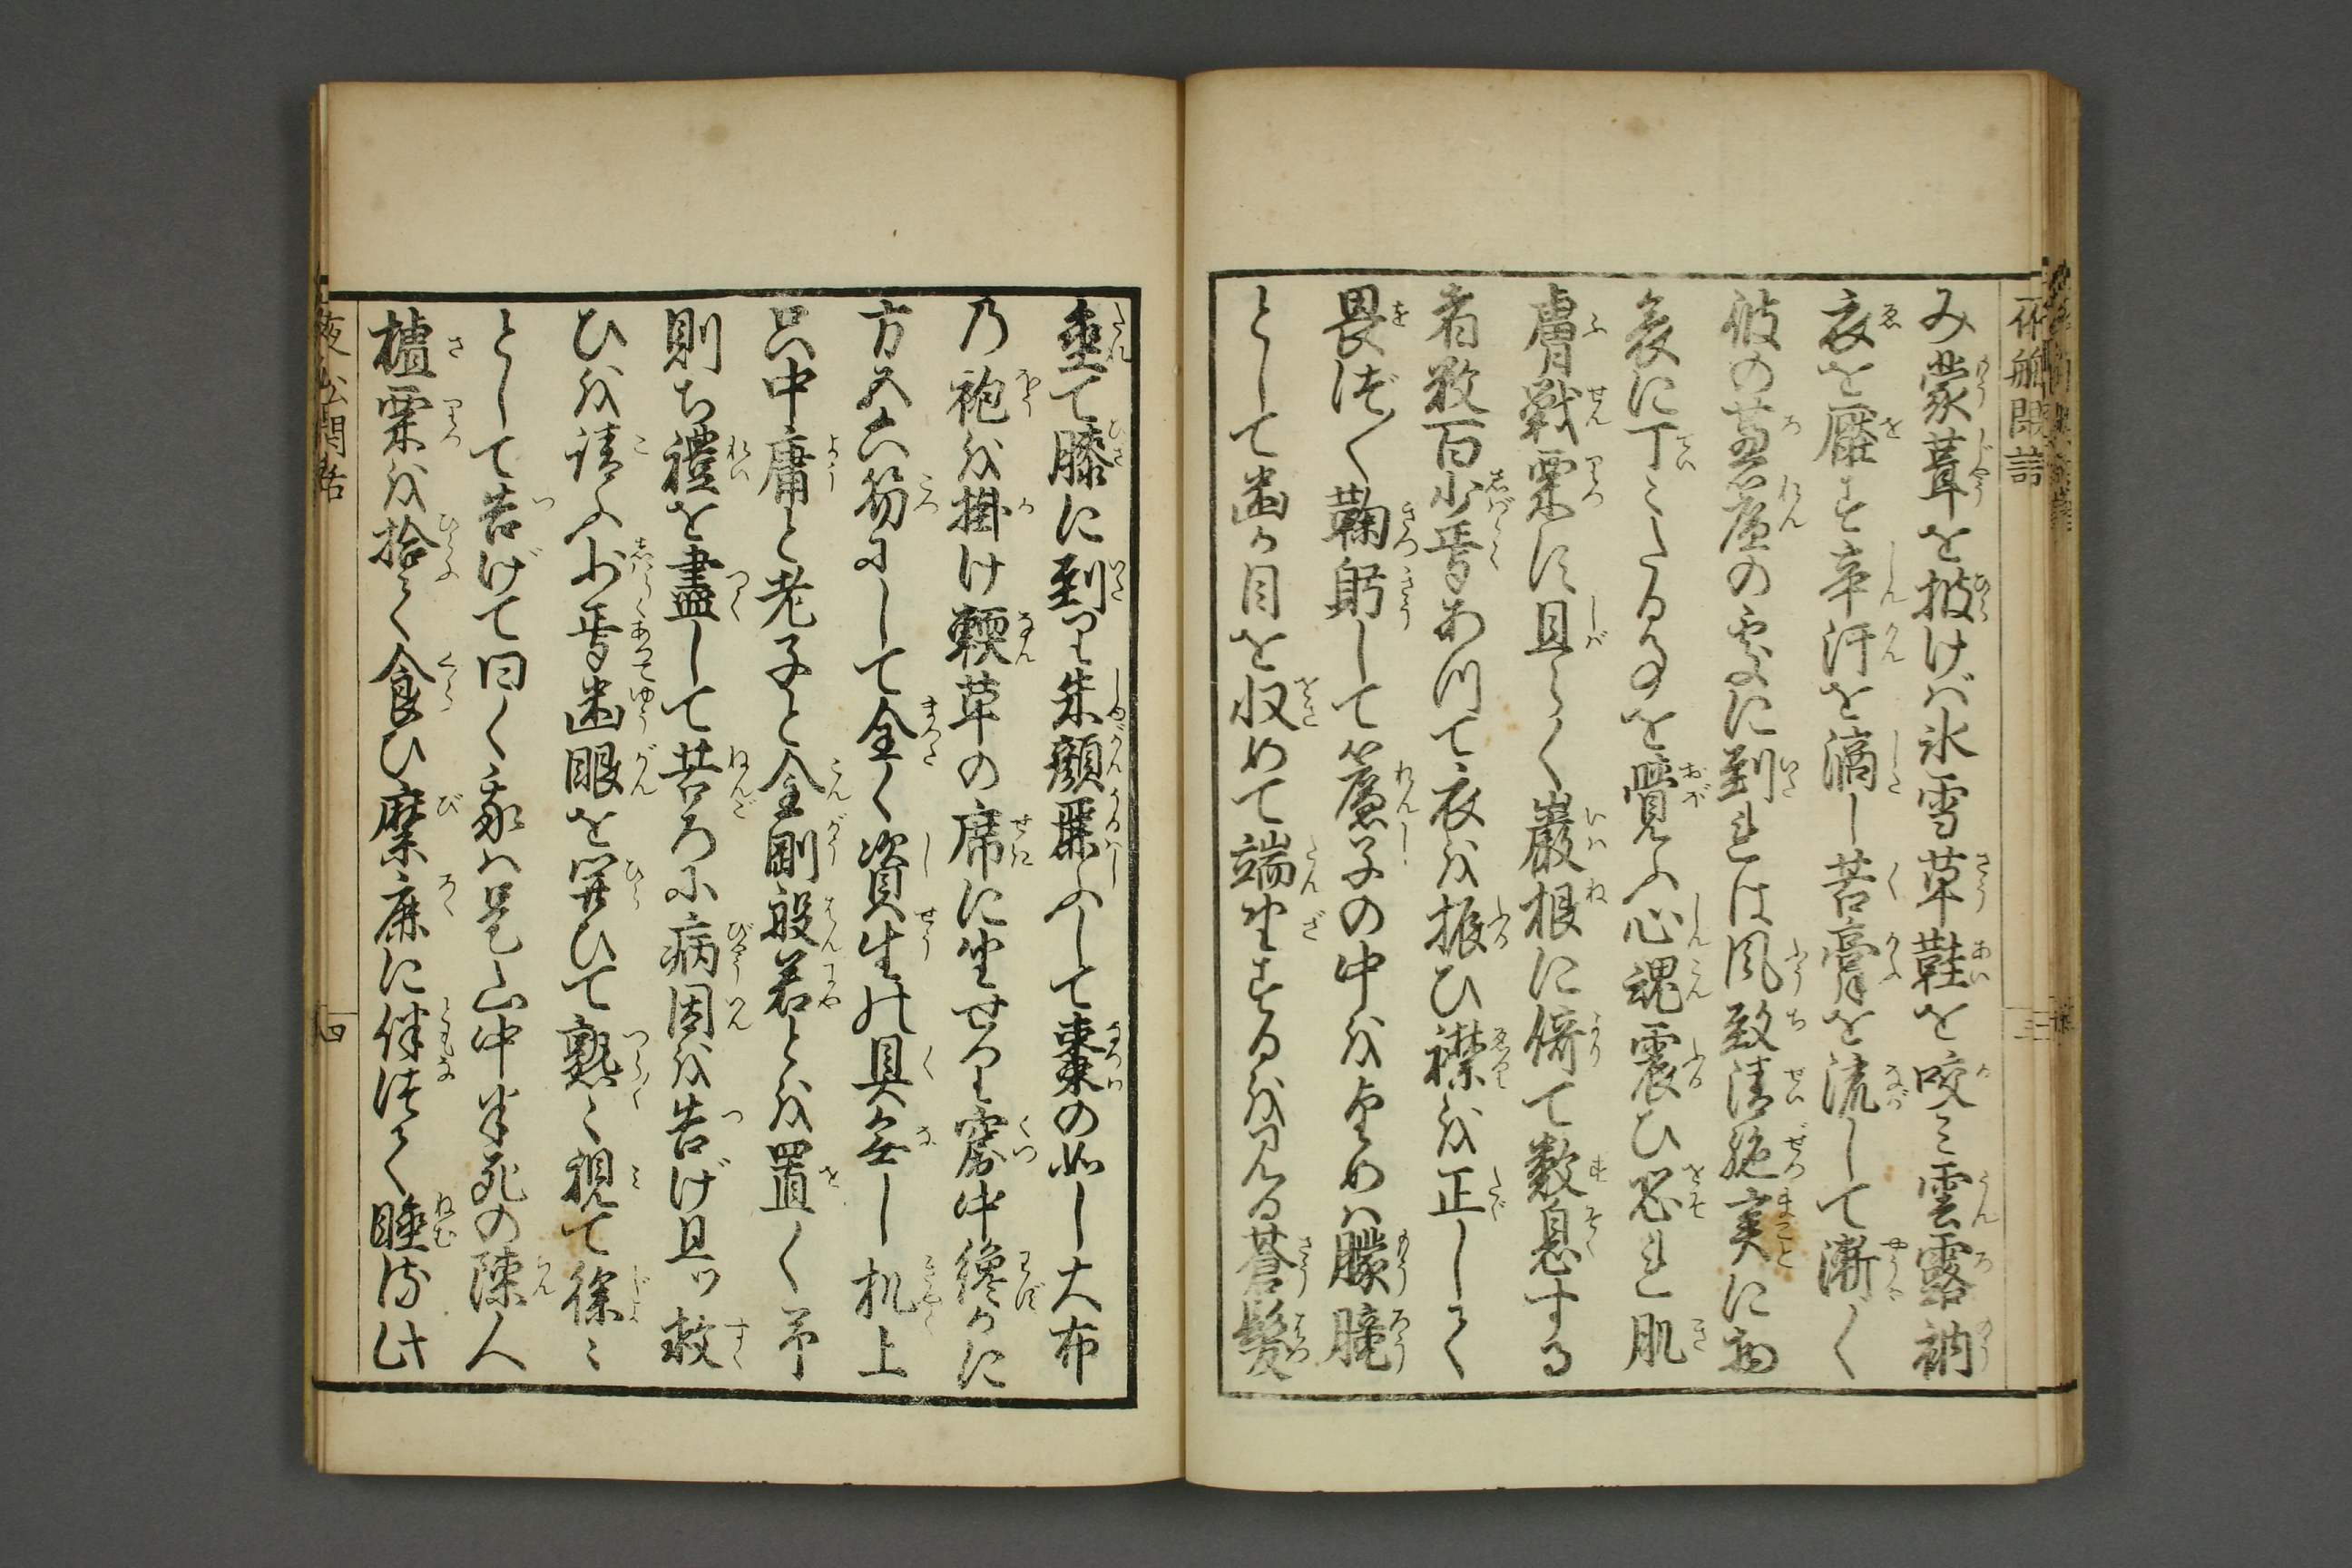 み蒙茸を披けば氷雪草鞋を咬ミ雲露衲
衣を壓す辛汗を滴し苦膏を流して漸く
彼の蘆簾の処に到れば風致清絶実に物
表に丁々たる事を覚ふ心魂震ひ恐れ肌
膚戦栗す且らく巌根に倚て数息する
者数百少焉あつて衣を振ひ襟を正して
畏づ〳〵鞠躬して簾子の中を望めば朦朧
として幽か目を収めて端坐するを見る蒼髪
垂て膝に到り朱顔麗ふして棗の如し大布
乃袍を掛け輭草の席に坐せり窟中纔かに
方五六笏にして全く資生の具無し机上
只中庸と老子と金剛般若とを置く予
則ち禮を盡して苦ろに病因を告げ且ツ救
ひを請ふ少焉幽眼を開ひて熟々視て徐々
として告げて曰く我は是山中半死の陳人
樝栗を拾て食ひ麋鹿に伴つて睡る此
夜舩閑話
三
夜舩閑話
四